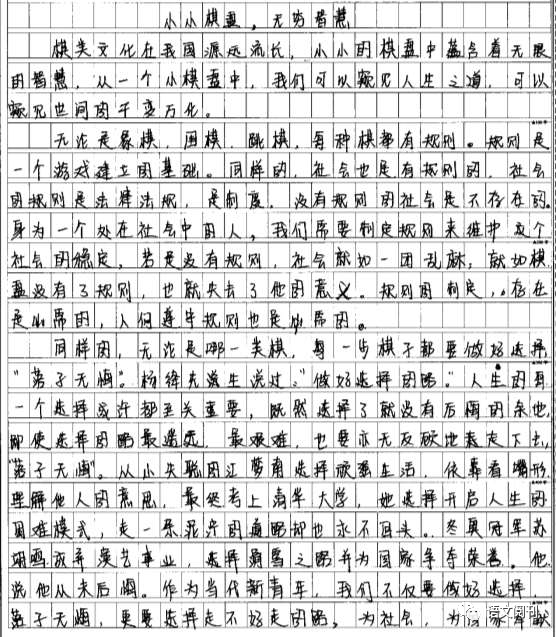 小小棋盘，无穷智慧
棋类文化在我国源远流长，小小的棋盘中蕴含着无限
的智慧，从一个小棋盘中，我们可以窥见人生之道，可以
窥见世间的千变万化。
无论是象棋，围棋，跳棋，每种棋都有规则。规则是
一个游戏建立的基础。同样的，社会也是有规则的，社会
的规则是法律法规，是制度，没有规则的社会是不存在的。
身为一个处在社会中的人，我们需要制定规则来维护这个
社会的稳定，若是没有规则，社会就如一团乱麻，就如棋
盘没有了规则，也就失去了他的意义。规则的制定，存在
是必需的，人们遵守规则也是必需的。
同样的，无论是哪一类棋，每一步棋子都要做好选择，
“落子无悔”。杨绛先生说过：“做好选择的路。”人生的每
一个选择或许都至关重要，既然选择了就没有后悔的余地，
即使选择的路最遥远，最艰难，也要亦无反顾地表走下去，
“落子无悔”。从小失聪的江梦南选择顽强生活，依靠看嘴形
理解他人的意思，最终考上清华大学，她选择开启人生的
困难模式，走一条艰辛的道路却也永不回头。冬奥冠军苏
翊鸣放弃演艺事业，选择滑雪之路并为国家争夺荣誉。他
说他从未后悔。作为当代新青年，我们不仅要做好选择
落子无悔，更要选择走不好走的路，为社会，为国家奉献
语文阅刊